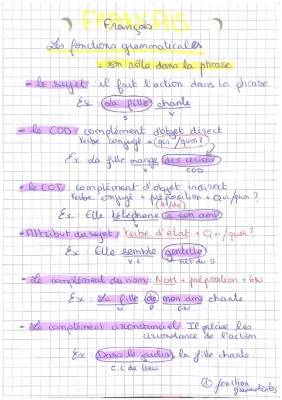 FRANÇAIS
Français
Les fonctions grammaticales
= son rôle dans la phrase
- le sujet : il fait l'action dans la phrase
Ex : La fille chante
S V
- le COD : complément d'objet direct
Verbe conjugué + qui/quoi?
Ex : La fille mange des cerises
V COD
- le COI : complément d'objet indirect
Verbe conjugué + préposition + Qui/quoi?
(à/de)
Ex : Elle téléphone à son ami
V
- Attribut du sujet : Verbe d'état + Qui/quoi?
Ex : Elle semble gentille
V.E att du S
- Le complément du nom : Nom + préposition + GN
Ex : La fille de mon ami chante
- Le complément circonstanciel : Il précise les
circonstances de l'action
Ex : Dans le jardin, la fille chante
C.C de lieu
① fonctions
grammaticales